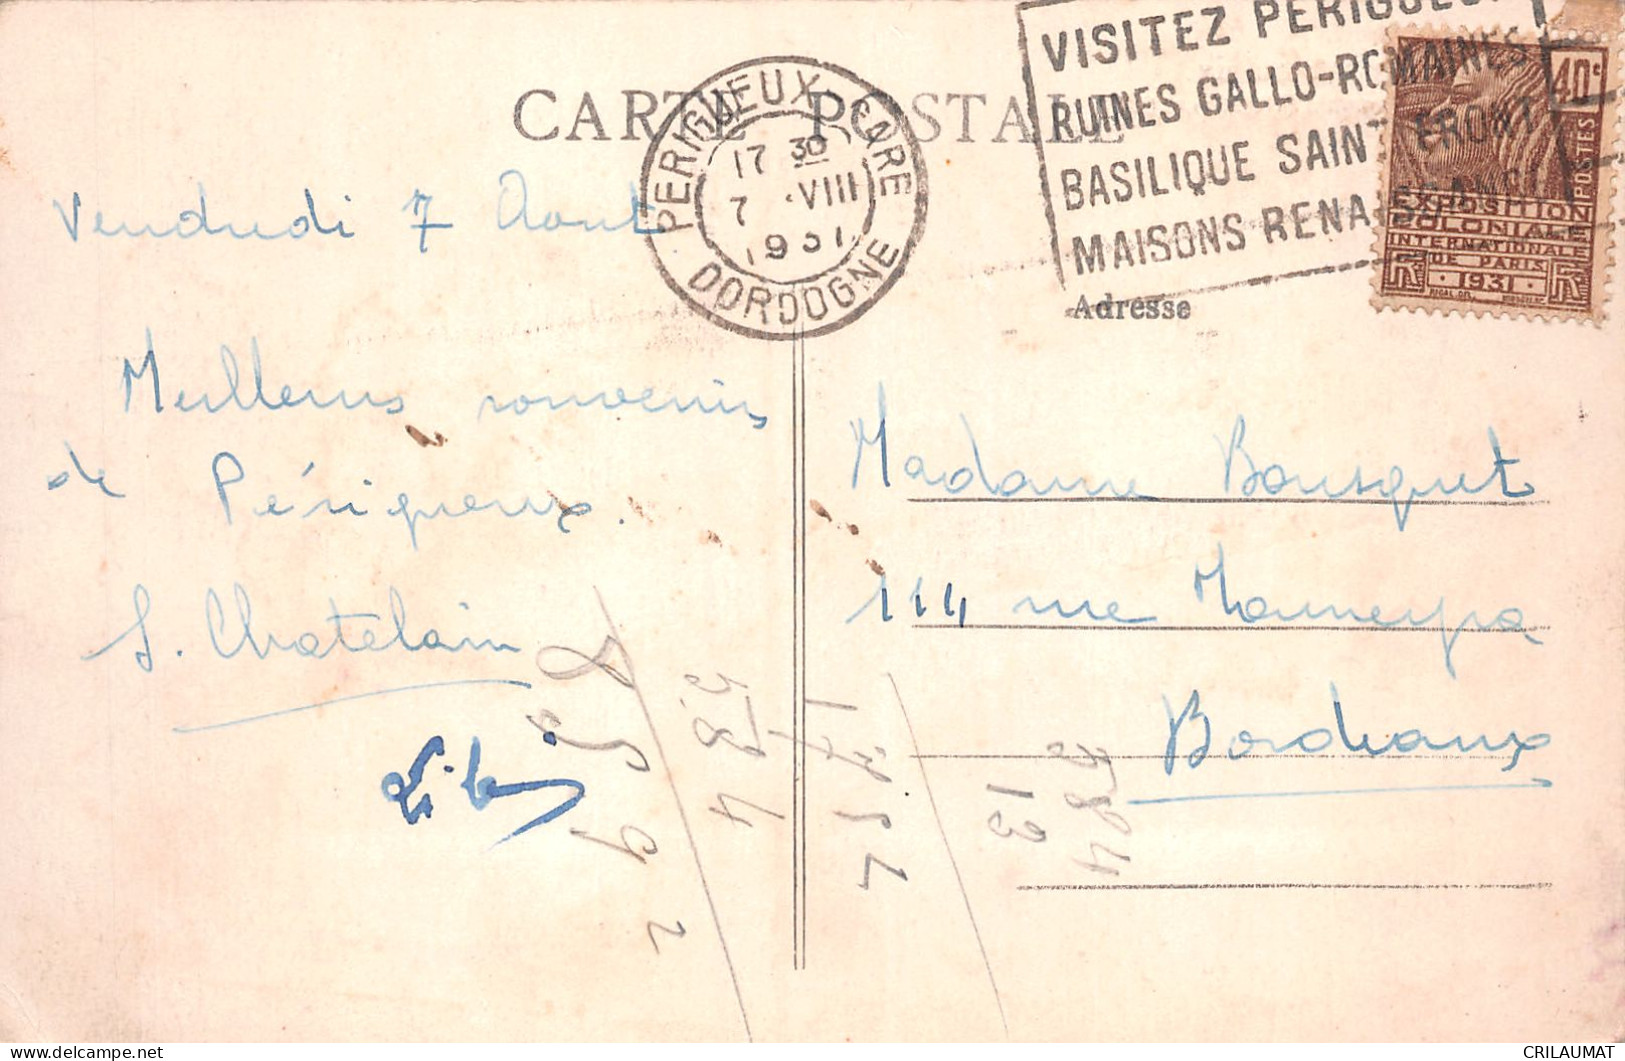 CARTE POSTALE
PERIGUEUX-GARE
17 30
7 VIII
1931
DORDOGNE
VISITEZ PERIGUEUX
RUINES GALLO-ROMAINES
BASILIQUE SAINT FRONT
MAISONS RENAISSANCE
40c
POSTES
EXPOSITION
COLONIALE
INTERNATIONALE
DE PARIS
1931
RF RF
Vendredi 7 Aout
Meilleurs souvenirs
de Périgueux.
S. Chatelain
Adresse
Madame Bousquet
114 rue
Bordeaux
584
13
1752
584
CRILAUMAT